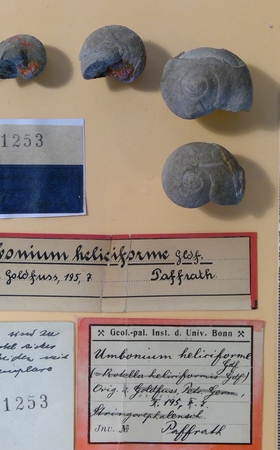 1253
bonium heliciforme Gldf.
Goldfuss, 195, 7 Paffrath.
und zu
1253
⚒ Geol.-pal. Inst. d. Univ. Bonn ⚒
Umbonium heliciforme
Gdf
(= Rotella heliciformis Gdf.)
Orig. z. Goldfuss, Petr. Germ.,
T. 195, F. 7.
Stringocephalensch.
Inv. № Paffrath